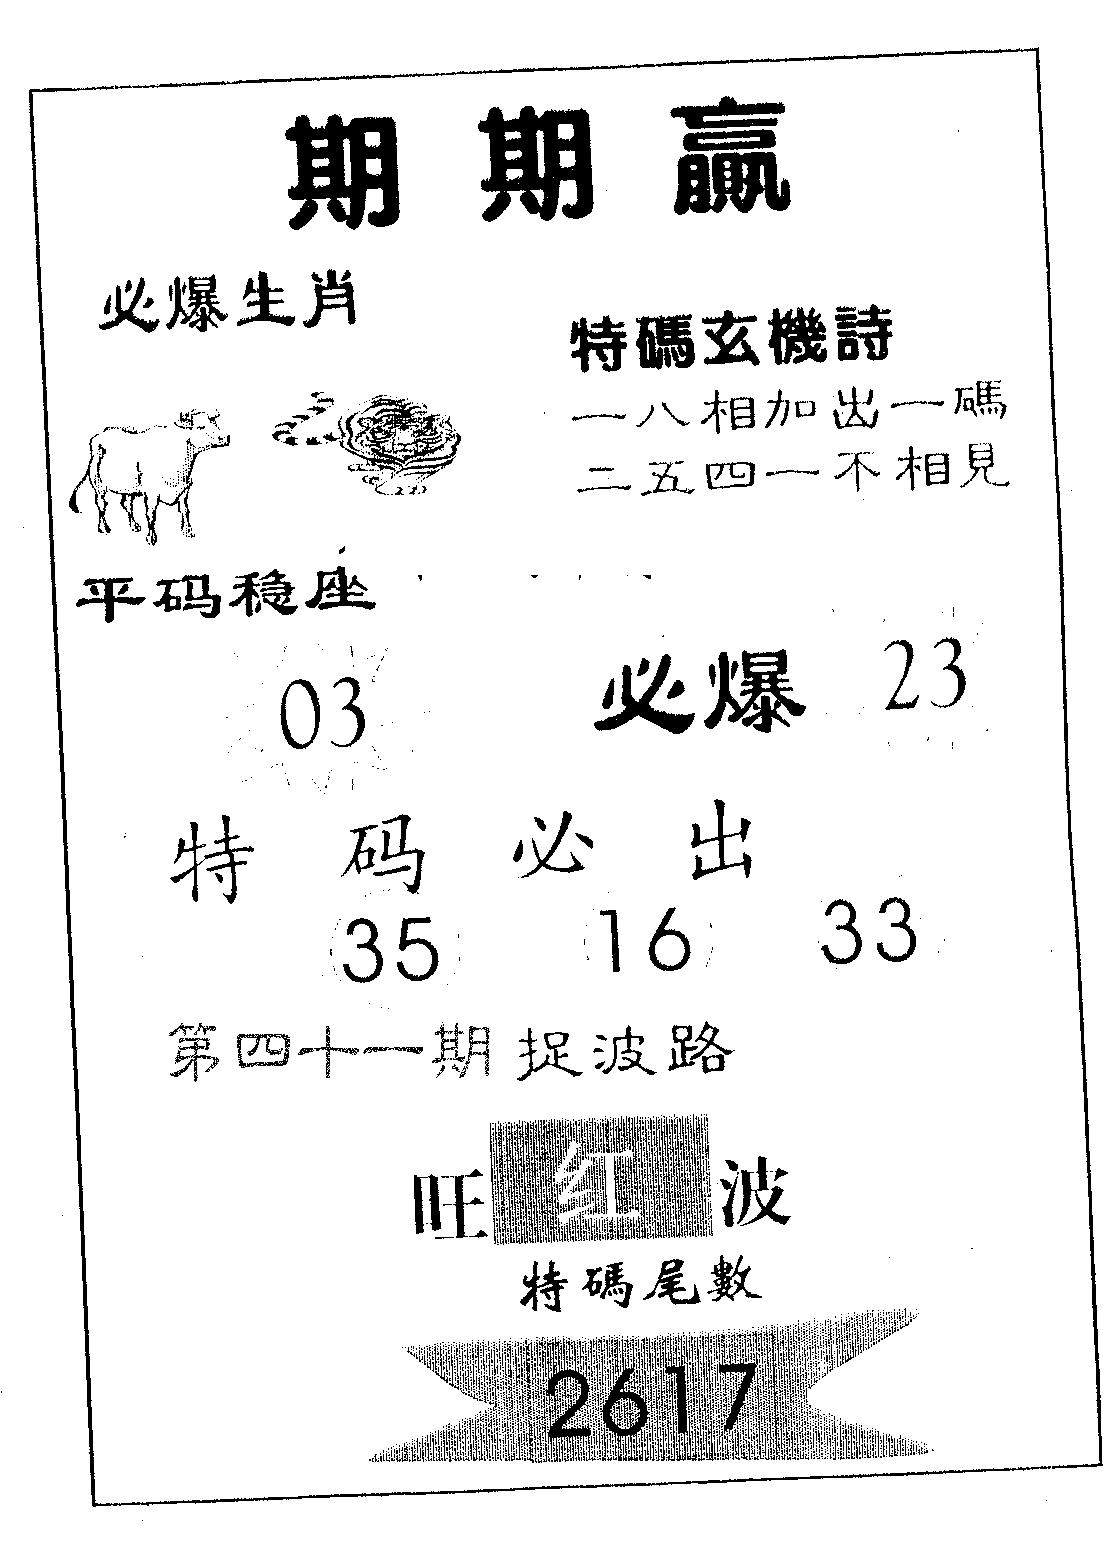 期期贏
必爆生肖
特碼玄機詩
一八相加出一碼
二五四一不相見
平码稳座
03
必爆 23
特码必出
35 16 33
第四十一期捉波路
旺红波
特碼尾數
2617